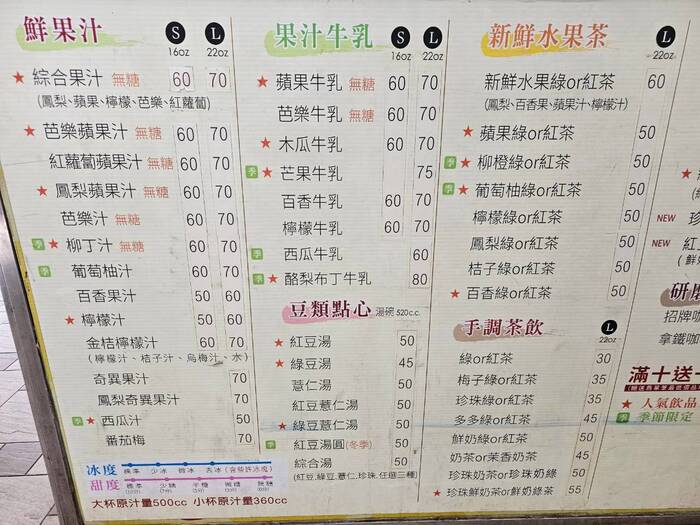 鮮果汁 S 16oz L 22oz
★ 綜合果汁 無糖 60 70
(鳳梨、蘋果、檸檬、芭樂、紅蘿蔔)
★ 芭樂蘋果汁 無糖 60 70
紅蘿蔔蘋果汁 無糖 60 70
★ 鳳梨蘋果汁 無糖 60 70
芭樂汁 無糖 60 70
季 ★ 柳丁汁 無糖 60 70
季 葡萄柚汁 60 70
百香果汁 50 60
★ 檸檬汁 50 60
金桔檸檬汁 60 70
(檸檬汁、桔子汁、烏梅汁、水)
奇異果汁 70
鳳梨奇異果汁 70
季 ★ 西瓜汁 50
番茄梅 70
冰度 標準 少冰 微冰 去冰 (含些許冰塊)
甜度 標準 少糖 半糖 微糖 無糖
大杯原汁量500cc 小杯原汁量360cc
果汁牛乳 S 16oz L 22oz
★ 蘋果牛乳 無糖 60 70
芭樂牛乳 無糖 60 70
★ 木瓜牛乳 60 70
季 ★ 芒果牛乳 75
百香牛乳 60 70
檸檬牛乳 60 70
季 西瓜牛乳 60
季 ★ 酪梨布丁牛乳 80
豆類點心 湯碗 520c.c.
★ 紅豆湯 50
★ 綠豆湯 45
薏仁湯 50
紅豆薏仁湯 50
★ 綠豆薏仁湯 50
季 紅豆湯圓(冬季) 50
綜合湯 50
(紅豆.綠豆.薏仁.珍珠.任選三種)
新鮮水果茶 L 22oz
新鮮水果綠or紅茶 60
(鳳梨、百香果、蘋果汁、檸檬汁)
★ 蘋果綠or紅茶 50
季 ★ 柳橙綠or紅茶 50
季 ★ 葡萄柚綠or紅茶 50
檸檬綠or紅茶 50
鳳梨綠or紅茶 50
桔子綠or紅茶 50
★ 百香綠or紅茶 50
手調茶飲 L 22oz
綠or紅茶 30
梅子綠or紅茶 35
珍珠綠or紅茶 35
多多綠or紅茶 45
鮮奶綠or紅茶 50
奶茶or茉香奶茶 45
珍珠奶茶or珍珠奶綠 50
★ 珍珠鮮奶茶or鮮奶綠茶 55
★
★
NEW
NEW 紅
(鮮
研磨
招牌咖
拿鐵咖
滿十送一
★ 人氣飲品
季 季節限定